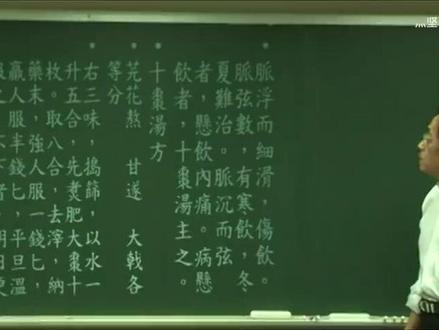 脈浮而細滑，傷飲。
脈弦數，有寒飲，冬
夏難治。脈沉而弦
者，懸飲內痛。病懸
飲者，十棗湯主之。
十棗湯方
芫花熬　甘遂　大戟各
等分
右三味，搗篩，以水一
升五合，先煑肥大棗十
枚。取八合，去滓，納
藥末，強人服一錢匕，
羸人服半錢匕，平旦溫
服之，不下者，明日更